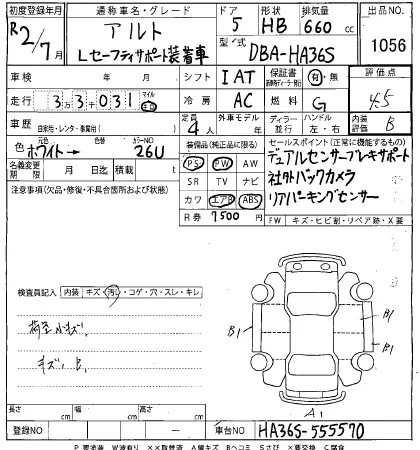 初度登録年月 通称車名・グレード ドア 形状 排気量 出品NO
R2/7月 アルト 5 HB 660cc 1056
Lセーフティサポート装着車 型式 DBA-HA36S
車検 年 月 シフト IAT 保証書 有・無 評価点
走行 33031 マイル 冷房 AC 燃料 G 4.5
車歴 自家用・レンタ・事業用( ) 定員 4人 外車モデル 年 ディーラー 並行 ハンドル 左・右 内装 B
色 元色 ホワイト→ カラーNO 26U 装備品(純正品に限る) セールスポイント(正常に機能するもの)
名義変更期限 月 日迄 積載量 t PS PW AW デュアルセンサーブレーキサポート
注意事項(欠品・修復・不具合箇所および状態) SR TV ナビ 社外バックカメラ
カワ エアB ABS リアパーキングセンサー
R券 7500 FW キズ・ヒビ割・リペア跡・X要
検査員記入 内装 キズ・汚レ・コゲ・穴・スレ・キレ
荷室小キズ,
キズ, B,
B1 B1
B1
A1
長さ cm 幅 cm 高さ cm
登録NO ー 車台NO HA36S-555570
P要塗装 W波有り ××取替済 A線キズ Bヘコミ Sさび ×要交換 C腐食